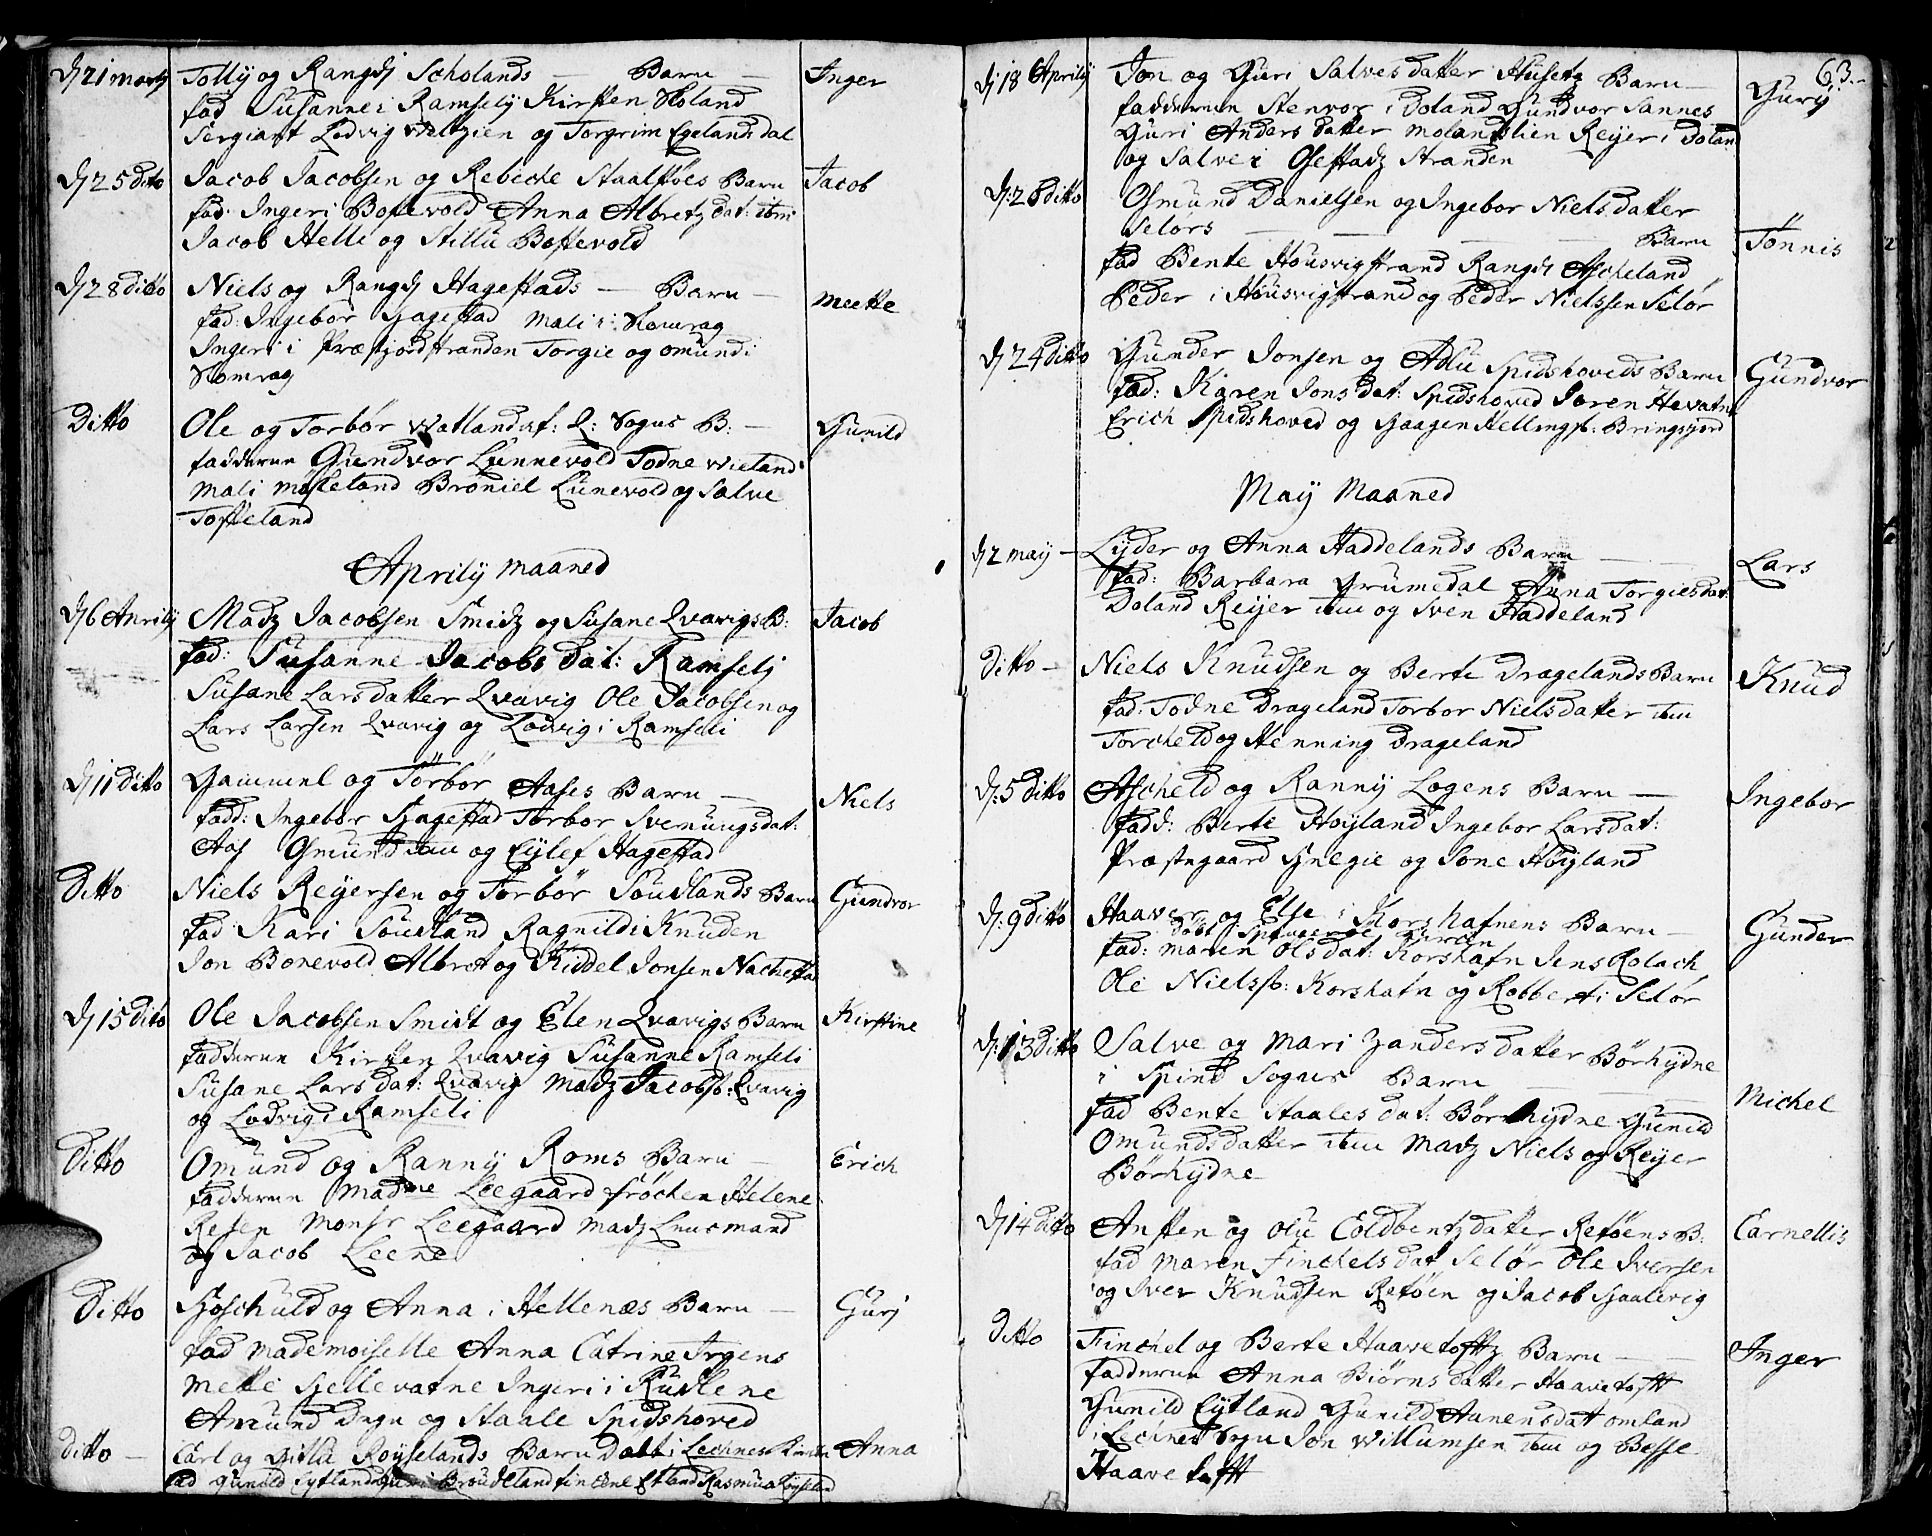 Dj 21 martj Tolly og Rangdj Scholands Barn Inger
fad Susanne i Ramselj Kirsten Skoland
Sergiant Lodvig Weltzien og Torgrim Egelandsdal
Dj 25 dito Jacob Jacobsen og Rebicke Staalstöes Barn Jacob
fad: Inger i Bostevold Anna Albretz dat: ibm
Jacob Helle og Stillu Bostevold
Dj 28 ditto Niels og Rangdj Hagestads Barn meette
fad: Ingebor Hagestad mali i Komrag
Inger i Præstjordstranden Torgie og omund i
Komrag
Ditto Ole og Torbör Watland af: Q: Sogns B: Gunild
fadderne Gundvor Lunnevold Todne Wieland
mali moseland Broniel Lunevold og Salve
Toffteland
Aprily maaned
Dj 6 Aprilj Madz Jacobsen Smidz og Susane Qvavigs B: Jacob
fad: Susanne Jacobs dat: Ramselj
Susane Lars datter Qvavig Ole Jacobsen og
Lars Larsen Qvavig og Lodvig i Ramseli
Dj 11 ditto Gammel og Törbör Aases Barn Niels
fadd: Ingebor Hagestad Torbor Svenungsdat:
Aas Osmund ibm og Eylef Hagestad
Ditto Niels Reyersen og Torbör Soudlands Barn Gundvor
fad: Kari Soudland Ragnild i Knuden
Jon Bonevold Albret og Kiddel Jonsen Nachestad
Dj 15 dito Ole Jacobsen Smidt og Elen Qvavigs Barn Kirstine
fadderne Kirsten Qvavig Susanne Ramseli
Susane Lars dat: Qvavig Madz Jacobs: Qvavig
og Lodvig i Ramseli
Ditto Omund og Ranny Roms Barn Erich
fadderne Madme Leegaard fröchen Helene
Resen Monsr Leegaard madz Lnusmand
og Jacob Leene
Ditto Hoschuld og Anna i Hellenæs Barn Gurj
fad mademoiselle Anna Catrine Irgens
mette Sellevatne Inger i i Rudlene
Amund Degn og Staale Spidshoved
ditto Carl og Gitlu Röyselands Barn Döbt i Lechnes Kirke Anna
fad Gunild Eytland Guri i Broudeland fincene Etland Rasmus Röyseland
63.
Dj 18 Aprily Jon og Guri Salves datter Husetz Barn Gury
fadderne Stenvor i Doland Gundvor Sannes
Guri Anders datter molandslien Reyer i Doland
og Salve i Ogestadz Stranden
Dj: 20 ditto Osmund Danielsen og Ingebor Niels datter
Selörs Barn Tönnis
fad Bente Housvigstrand Rangdj Ascheland
Peder i Housvigstrand og Peder Nielssen Selör
Dj 24 ditto Gunder Jonsen og Adlu Spidshoveds Barn Gundvor
fad: Karen Jons dat: Spidshoved Soren Hevatne
Erich Spidshoved og Haagen Hellings: Bringsjord
May Maaned
Dj 2 may Lyder og Anna Haddelands Barn Lars
fad: Barbara Grumedal Anna Torgiesdat:
Doland Reyer ibm og Sven Haddeland
ditto Niels Knudsen og Berte Dragelands Barn Knud
fad: Todne Drageland Torbor Nielsdatter ibm
Torcheld og Henning Drageland
Dj: 5 ditto Ascheld og Ranny Logens Barn Ingebor
fadd: Berte Höyland Ingebor Larsdat:
Præstegaard Helgie og Sone Höyland
Dj: 9 ditto Haaver og Else i Korshafnens Barn Gunder
döbt i Spinds Kircke
fad: maren Olsdat: Korshafn Jens Rolach
Ole Niels: Korshafn og Robbert i Selör
Dj: 13 ditto Salve og Mari Zanders datter Börhydne
i Spind Sogns Barn Michel
fad Bente Staales dat: Börhydne Gunild
Omunds datter ibm Madz Niels og Reyer
Börhydne
Dj 14 ditto Ansten og Olu Coldbentz datter Retöens B: Carnellis
fad Maren Finchels dat Selör Ole Iversen
og Iver Knudsen Retöen og Jacob Haalevig
ditto Finchel og Berte Haavetofftz Barn Inger
fadderne Anna Biörns datter Haavetofft
Gunild Eytland Gunild Aanensdat omland
i Lechnes Sogn Jon Willumsen ibm og Besse
Haavetofft